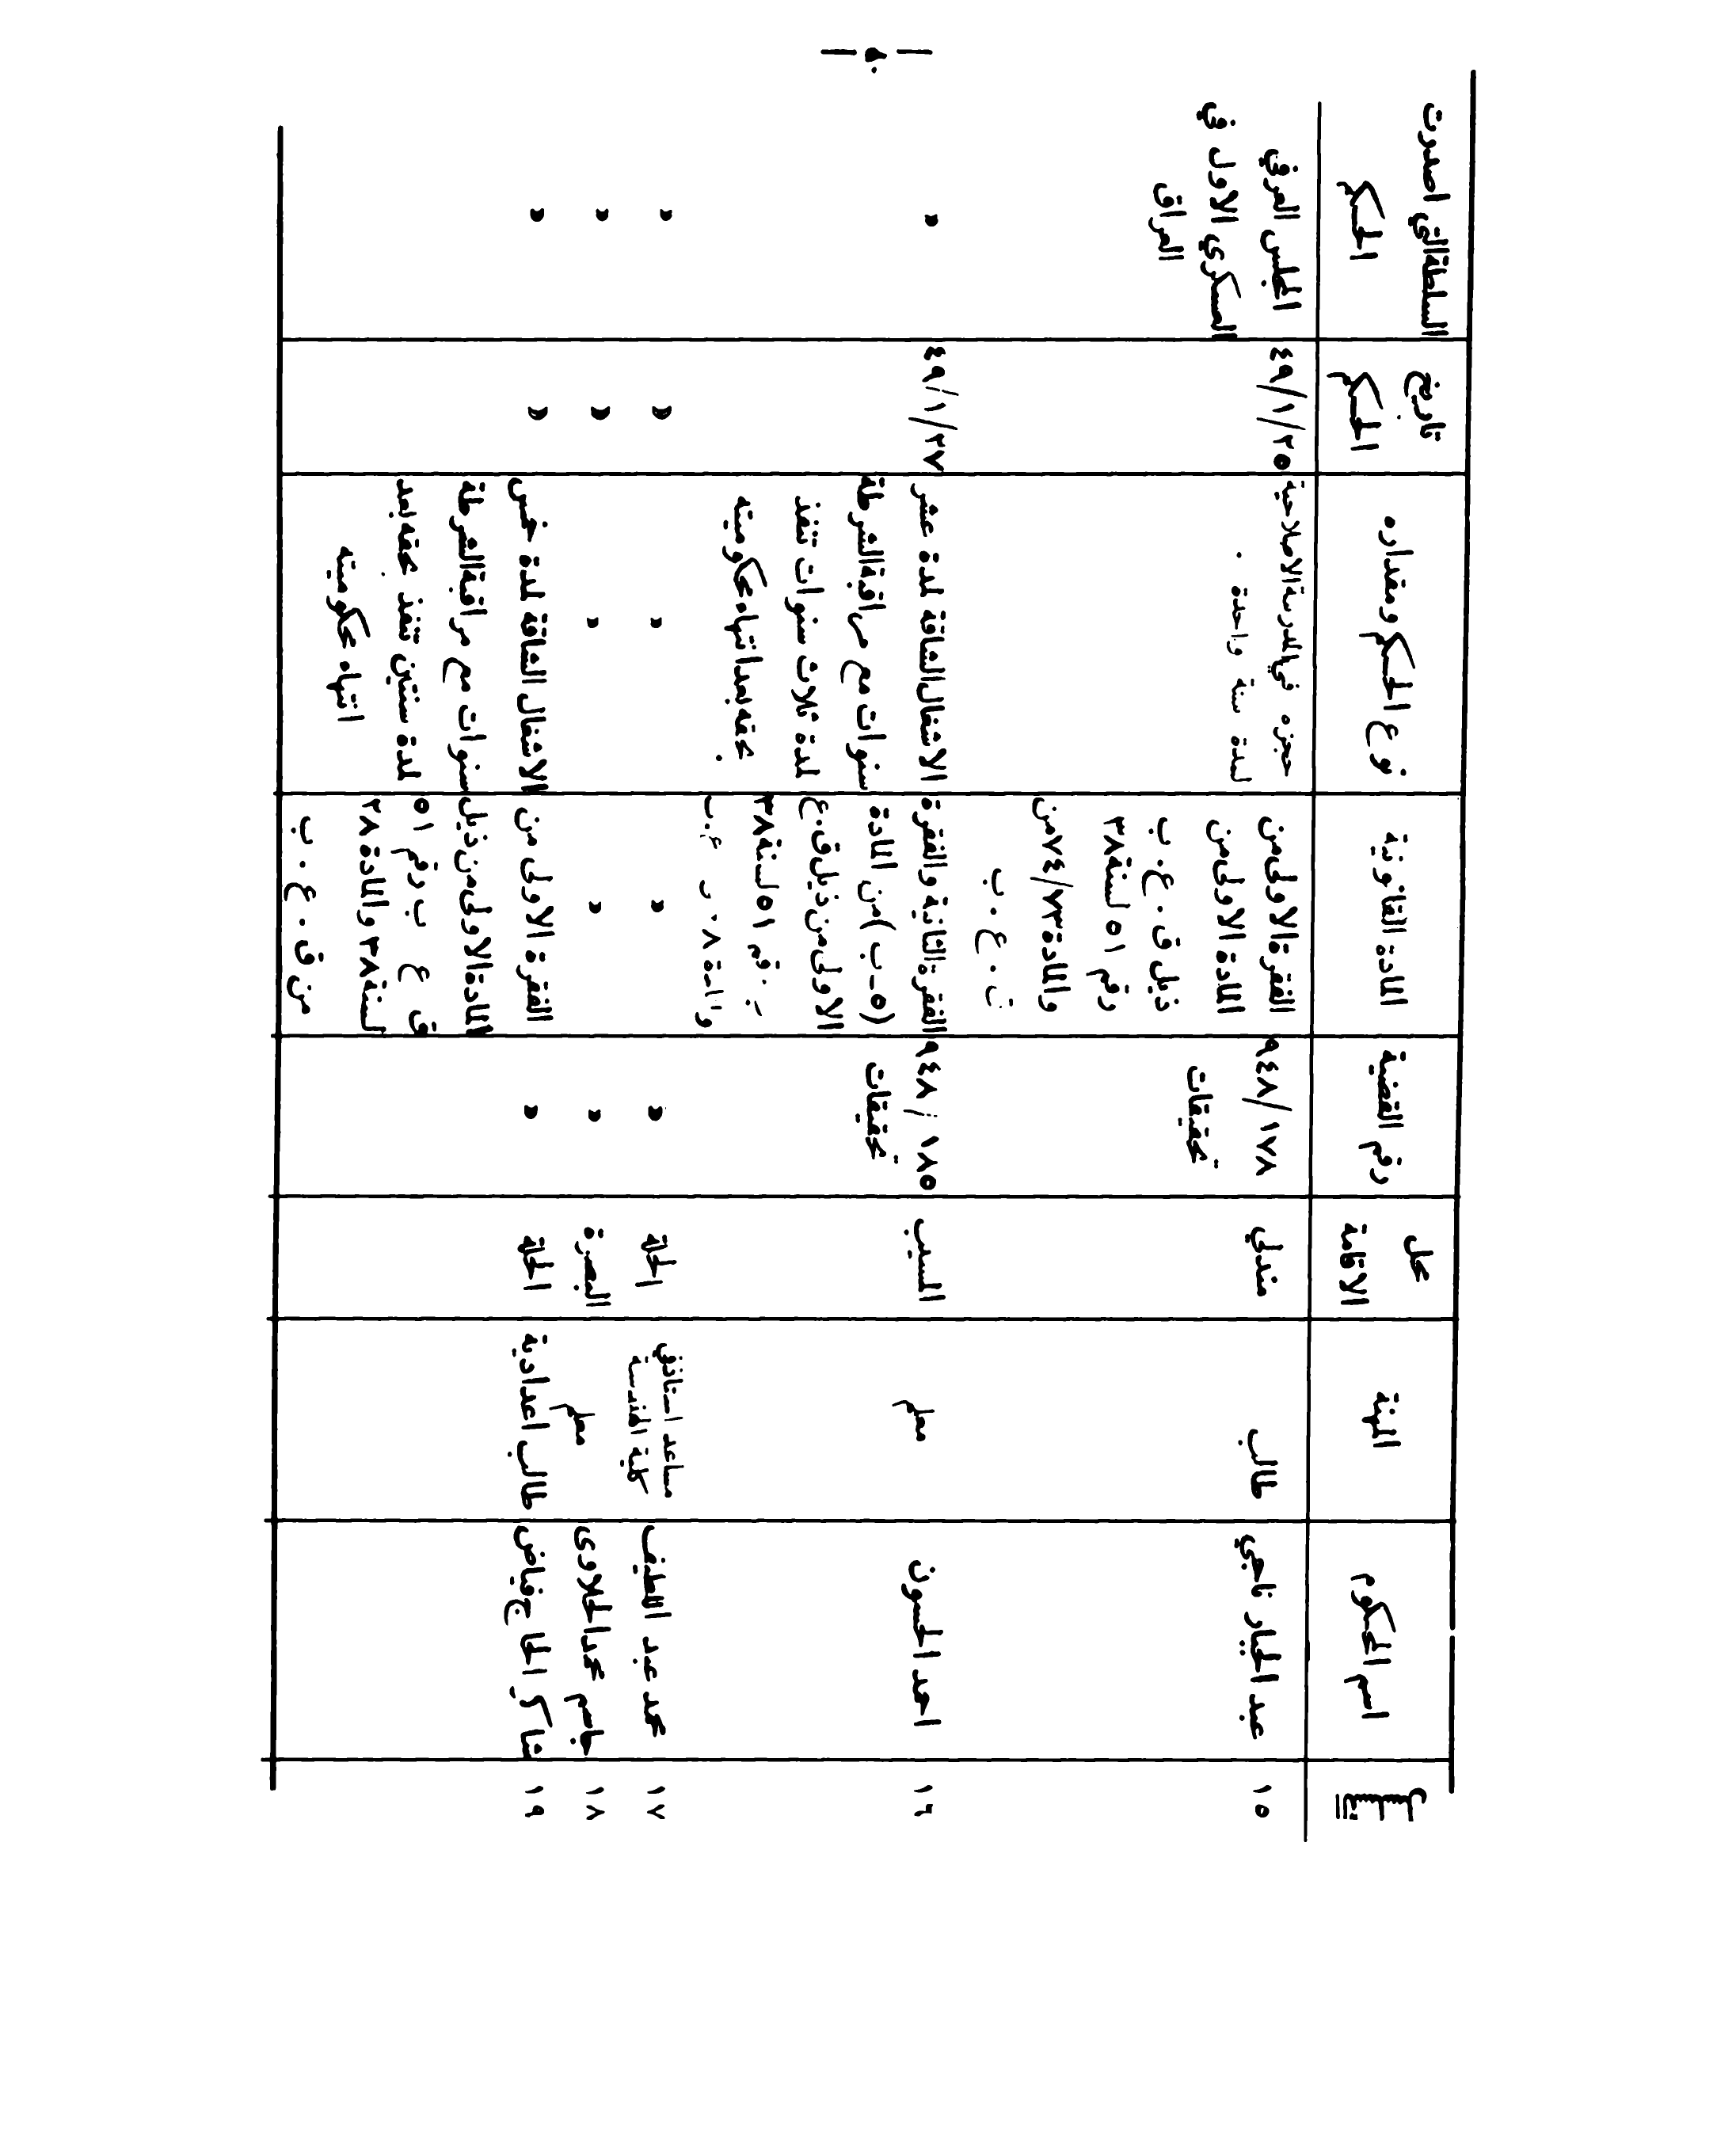 — ٥٠ —
تسلسل
اسم المحكوم
المهنة
محل
الاقامة
رقم القضية
المادة القانونية
نوع الحكم ومقداره
تاريخ
الحكم
السلطة التي اصدرت
الحكم
١٥
عبد الجبار ناجي
طالب
مندلي
٩٤٨/١٧٨
تحقيقات
الفقرة الاولى من
المادة الاولى من
ذيل ق . ع . ب
رقم ٥١ لسنة ٣٨
والمادة ٧٤/٧٣ من
ق . ع . ب
حجزه في المدرسة الاصلاحية
لمدة سنة واحدة .
٤٩/١/٢٥
المجلس العرفي
العسكري الاول في
العراق
١٦
احمد الحسون
معلم
المسيب
٩٤٨/١٨٥
تحقيقات
الفقرة الثانية والفقرة
(٥-ب) من المادة
الاولى من ذيل ق.ع
رقم ٥١ لسنة ٣٨
الاشغال الشاقة لمدة عشر
سنوات مع مراقبة الشرطة
لمدة ثلاث سنوات تنفذ
بحقه بعد انتهاء محكوميته .
٤٩/١/٢٧
»
١٧
محمد عبد اللطيف
مساعد استاذ في
كلية الهندسة
الحلة
»
»
»
»
»
١٨
جاسم محمد الحلاوى
معلم
البصرة
»
»
»
»
»
١٩
شاكر الحاج فياض
طالب اعدادية
الحلة
»
الفقرة الاولى من
المادة الاولى من ذيل
ق ع ب رقم ٥١
لسنة ٣٨ والمادة ٢٨
من ق . ع . ب
الاشغال الشاقة لمدة خمس
سنوات مع مراقبة الشرطة
لمدة سنتين تنفذ بحقه بعد
انتهاء محكوميته
»
»